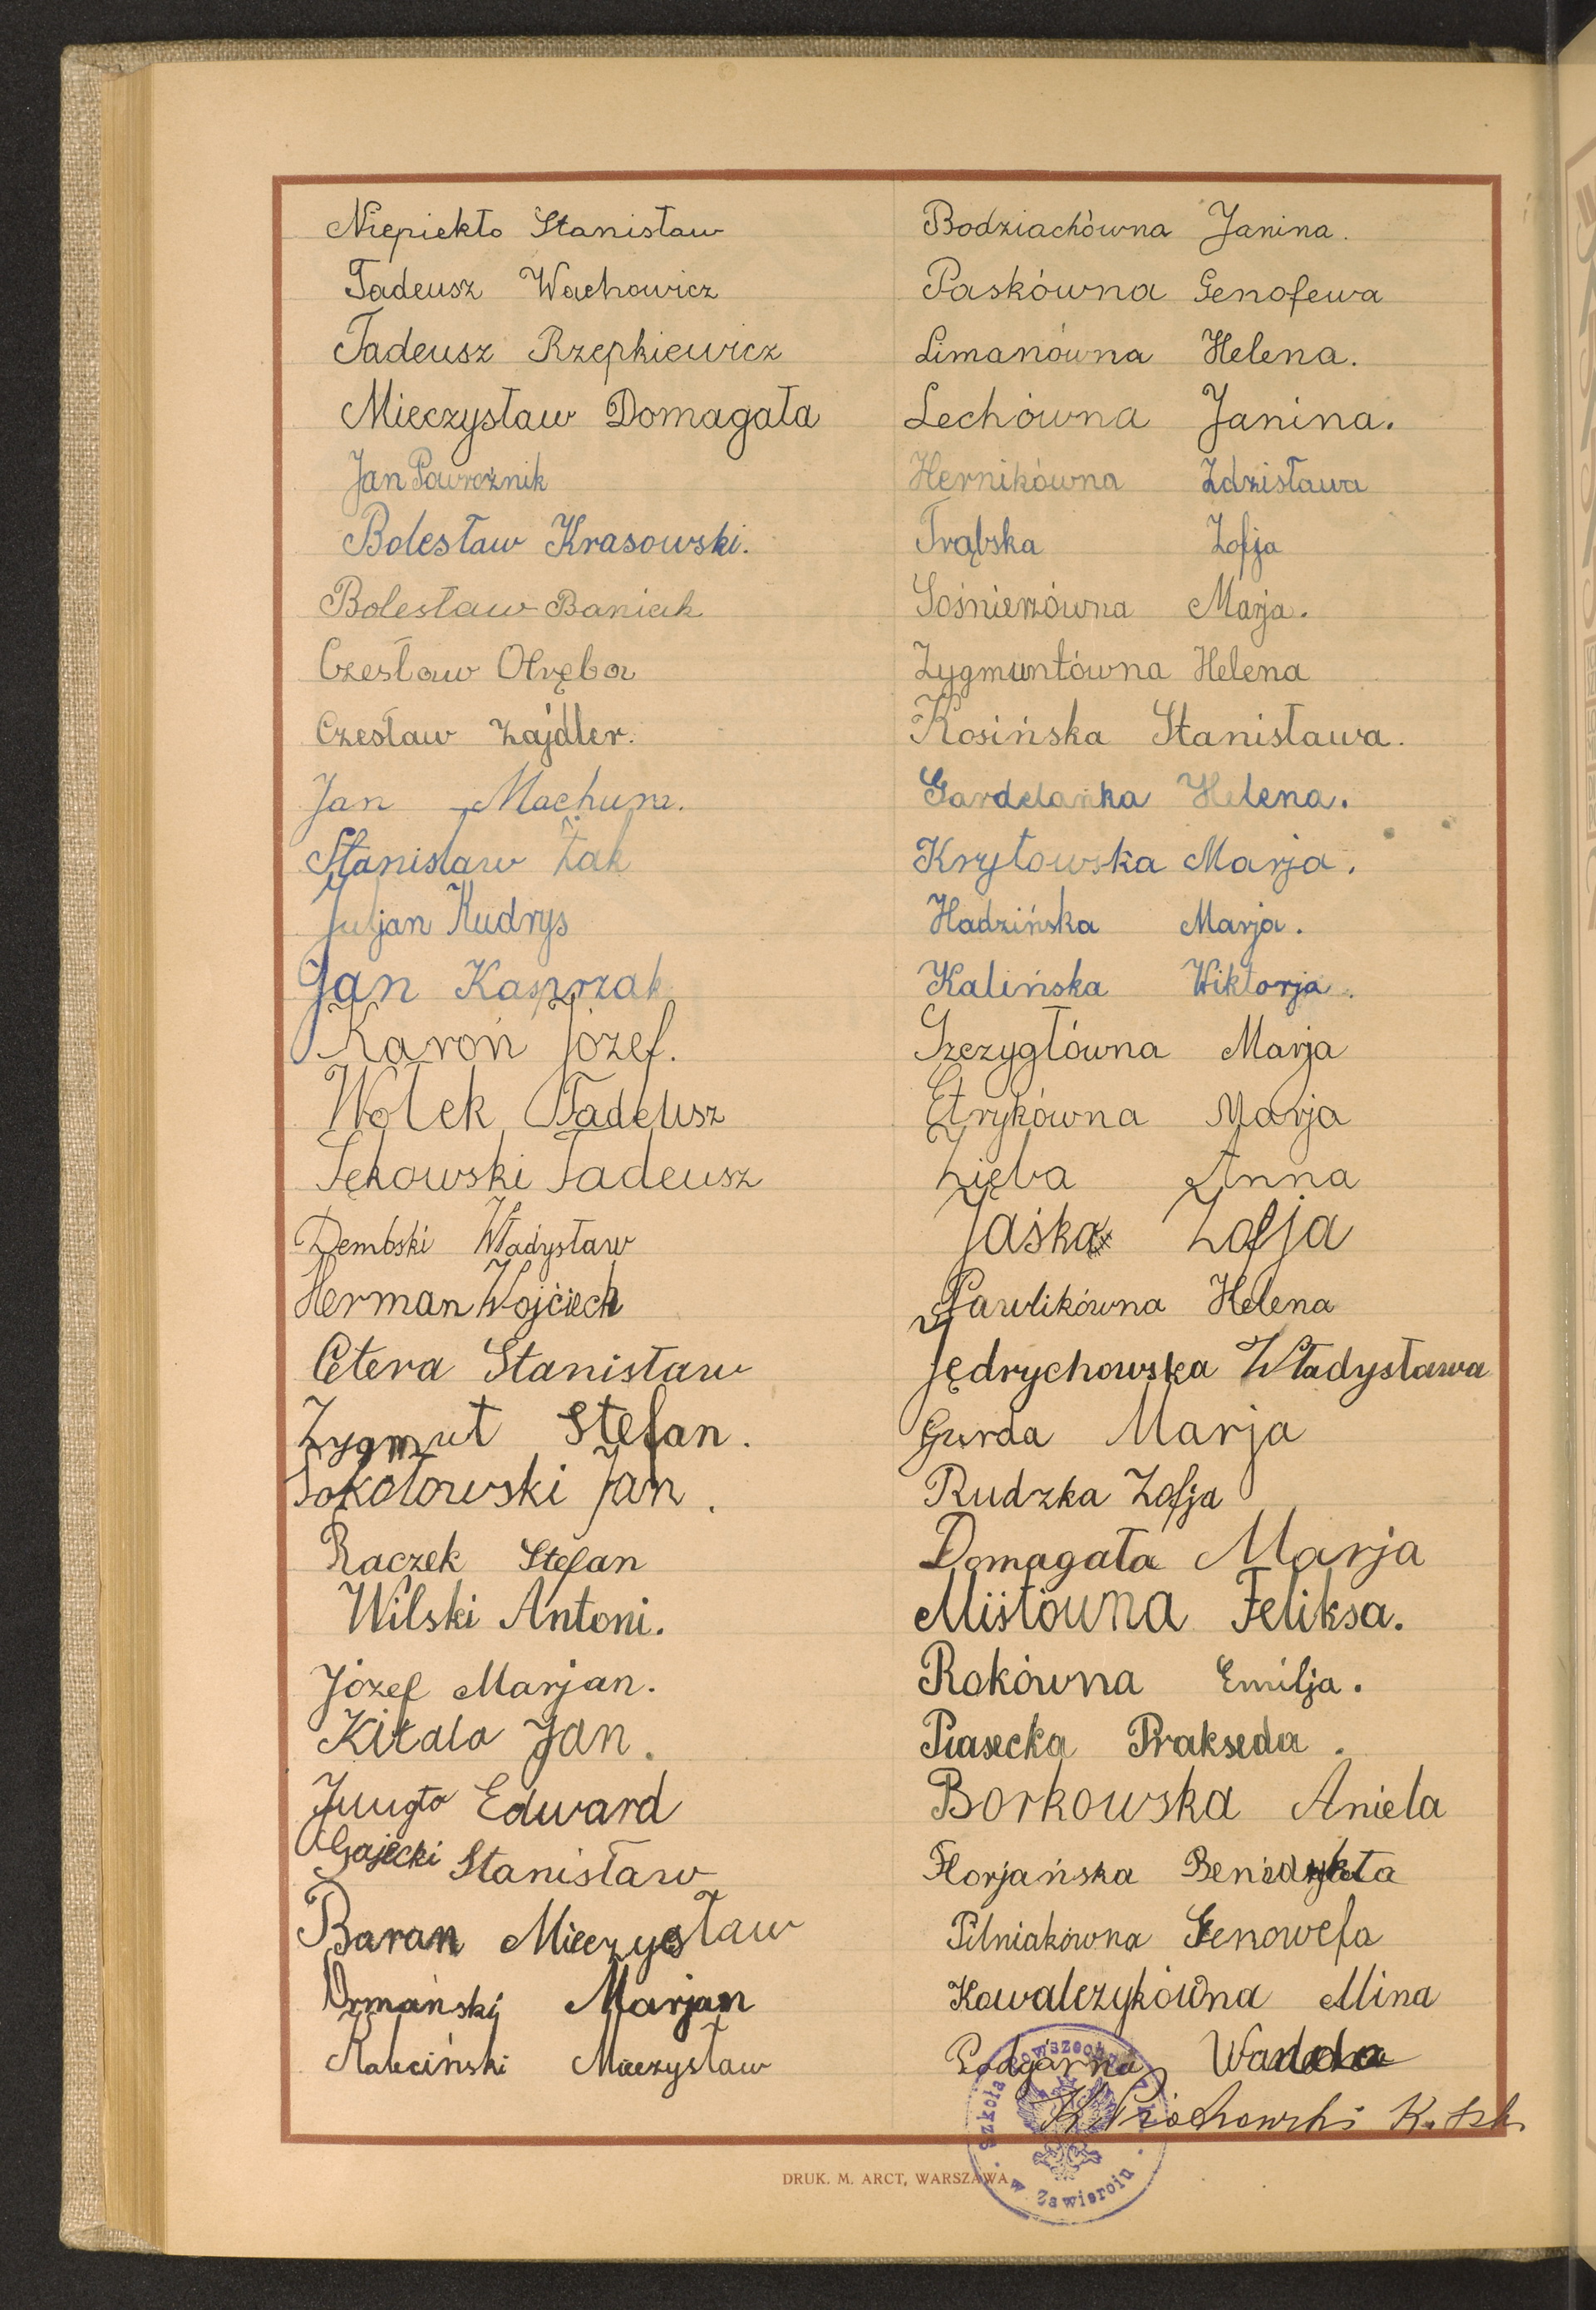 Niepiekło Stanisław
Tadeusz Wachowicz
Tadeusz Rzepkiewicz
Mieczysław Domagała
Jan Powroźnik
Bolesław Krasowski.
Bolesław Baniak
Czesław Otręba
Czesław Zajdler.
Jan Machura.
Stanisław Żak
Juljan Kudrys
Jan Kasprzak
Karoń Józef.
Wołek Tadeusz
Sękowski Tadeusz
Dembski Władysław
Herman Wojciech
Cetera Stanisław
Zygmut Stefan.
Sokołowski Jan.
Raczek Stefan
Wilski Antoni.
Józef Marjan.
Kitala Jan.
Edward
Gajecki Stanisław
Baran Mieczysław
Ormański Marjan
Mieczysław
Bodziachówna Janina.
Paskówna Genofewa
Limanówna Helena.
Lechówna Janina.
Hernikówna Zdzisława
Trąbska Zofja
Sośnierzówna Marja.
Zygmuntówna Helena
Kosińska Stanisława.
Gardelanka Helena.
Kryłowska Marja.
Hadzińska Marja.
Kalińska Wiktorja.
Szczygłówna Marja
Etrykówna Marja
Zięba Anna
Jaśka Zofja
Pawlikówna Helena
Jędrychowska Władysława
Gurda Marja
Rudzka Zofja
Domagała Marja
Miśtówna Feliksa.
Rokówna Emilja.
Piasecka Prakseda.
Borkowska Aniela
Florjańska Benedykta
Pilniakówna Genowefa
Kowalczykówna Alina
Podgórna Wanda
K. Szk.
Szkoła Powszechna
w Zawierciu
DRUK. M. ARCT, WARSZAWA